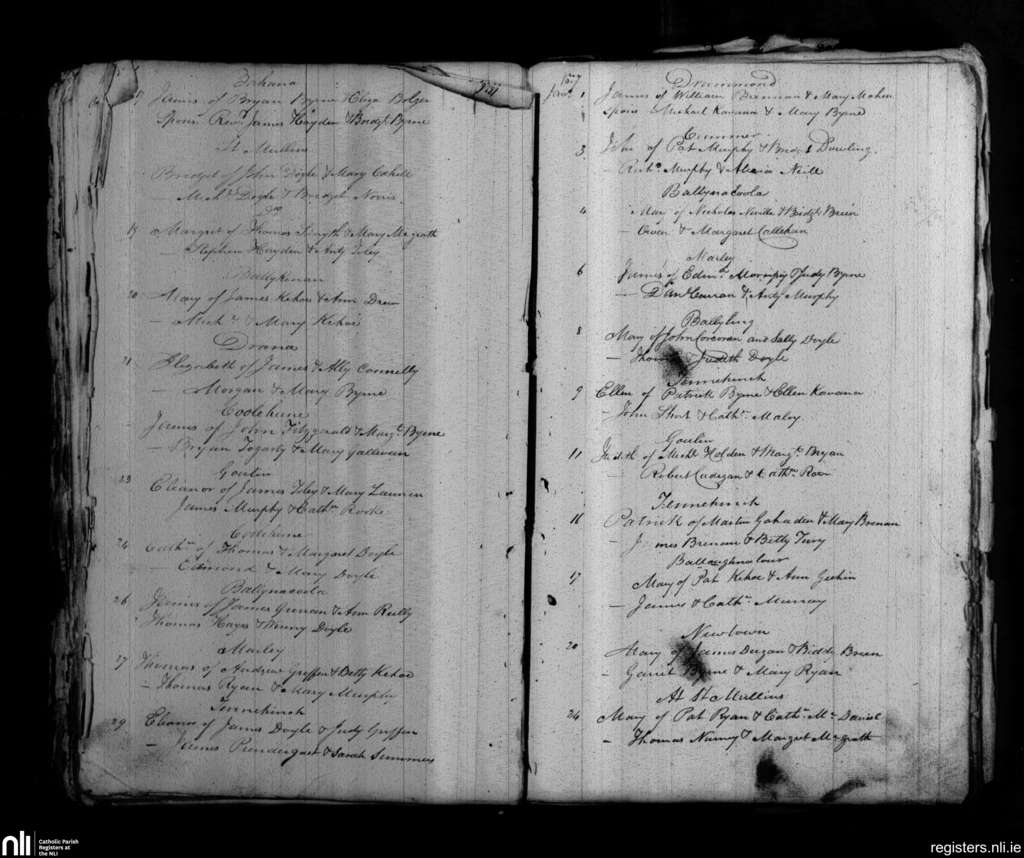 Bahana
17 James of Bryan Byrne Eliza Bolger
Spons. Revd. James Hayden & Bridgt Byrne
St Mullins
Bridget of John Doyle & Mary Cahill
— Michl. Doyle & Bridget Norris
Do
19 Margret of Thomas & Mary McGrath
— Stephen Hayden & Anty Foley
Ballykenan
20 Mary of James Kehoe & Ann Drew
— Michl. & Mary Kehoe
Drana
21 Elizabeth of James & Ally Connelly
— Morgan & Mary Byrne
Coolehune
James of John Fitzgerald & Margt. Byrne
— Bryan Fogarty & Mary
Goulin
23 Eleanor of James Foley & Mary
James Murphy & Cathn. Roche
Coolehune
24 Cathn. of Thomas & Margaret Doyle
— Edmond & Mary Doyle
Ballynacoola
26 of James & Ann Reilly
Thomas Hayes & Doyle
Marley
27 Thomas of Andrew Griffen & Betty Kehoe
— Thomas Ryan & Mary Murphy
Tennehinch
29 Eleanor of James Doyle & Judy Griffen
— James Prendergast & Sarah Simmers
1819
Drummond
Jany. 1 James of William Brennan & Mary Mahon
Spons & Michael Kavana & Mary Byrne
Cummer
3 John of Pat Murphy & Bridgt Dowling
— Richd. Murphy & Maria Neill
Ballynacoola
4 Mary of Nicholas Neville & Bidgt Brien
— Owen & Margaret Callehan
Marley
6 James of Edmd. Morrissy & Judy Byrne
— Danl Curran & Anty Murphy
Ballyling
8 Mary of John Corcoran and Sally Doyle
— Thomas & Judith Doyle
Tennehinch
9 Ellen of Patrick Byrne & Ellen Kavana
— John & Cathn. Maley
Goulin
11 Judith of Michl Holden & Margt. Bryan
— Robert Cadigan & Cathn. Row
Tennehinch
16 Patrick of Martin & Mary Brenan
— James Brenan & Betty Terry
Ballaughnalour
17 Mary of Pat Kehoe & Ann
— James & Cathn. Murray
Newtown
20 Mary of James Deegan & Biddy Breen
— Garret Byrne & Mary Ryan
At St Mullins
24 Mary of Pat Ryan & Cathn. McDaniel
— Thomas & Margret McGrath
nli
Catholic Parish
Registers at
the NLI
registers.nli.ie